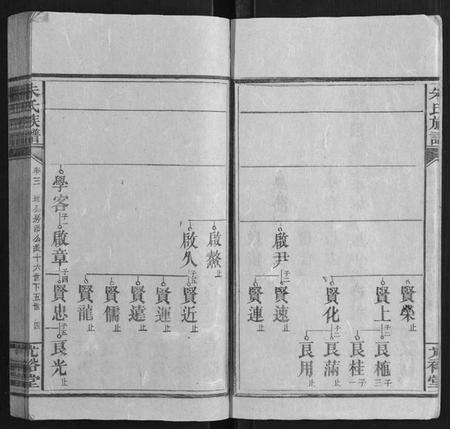 朱氏族譜
賢榮 止
賢上 子二
良桂 子一
賢化 子二
良滿 止
良用 止
啟尹 子二
賢速 止
賢連 止
啟鰲 止
啟久
賢近 止
賢運 止
賢達 止
賢儒 止
賢龍 止
學客 子一
啟章 子四
賢忠
良光 止
朱氏族譜
卷三
十六世下五世
四